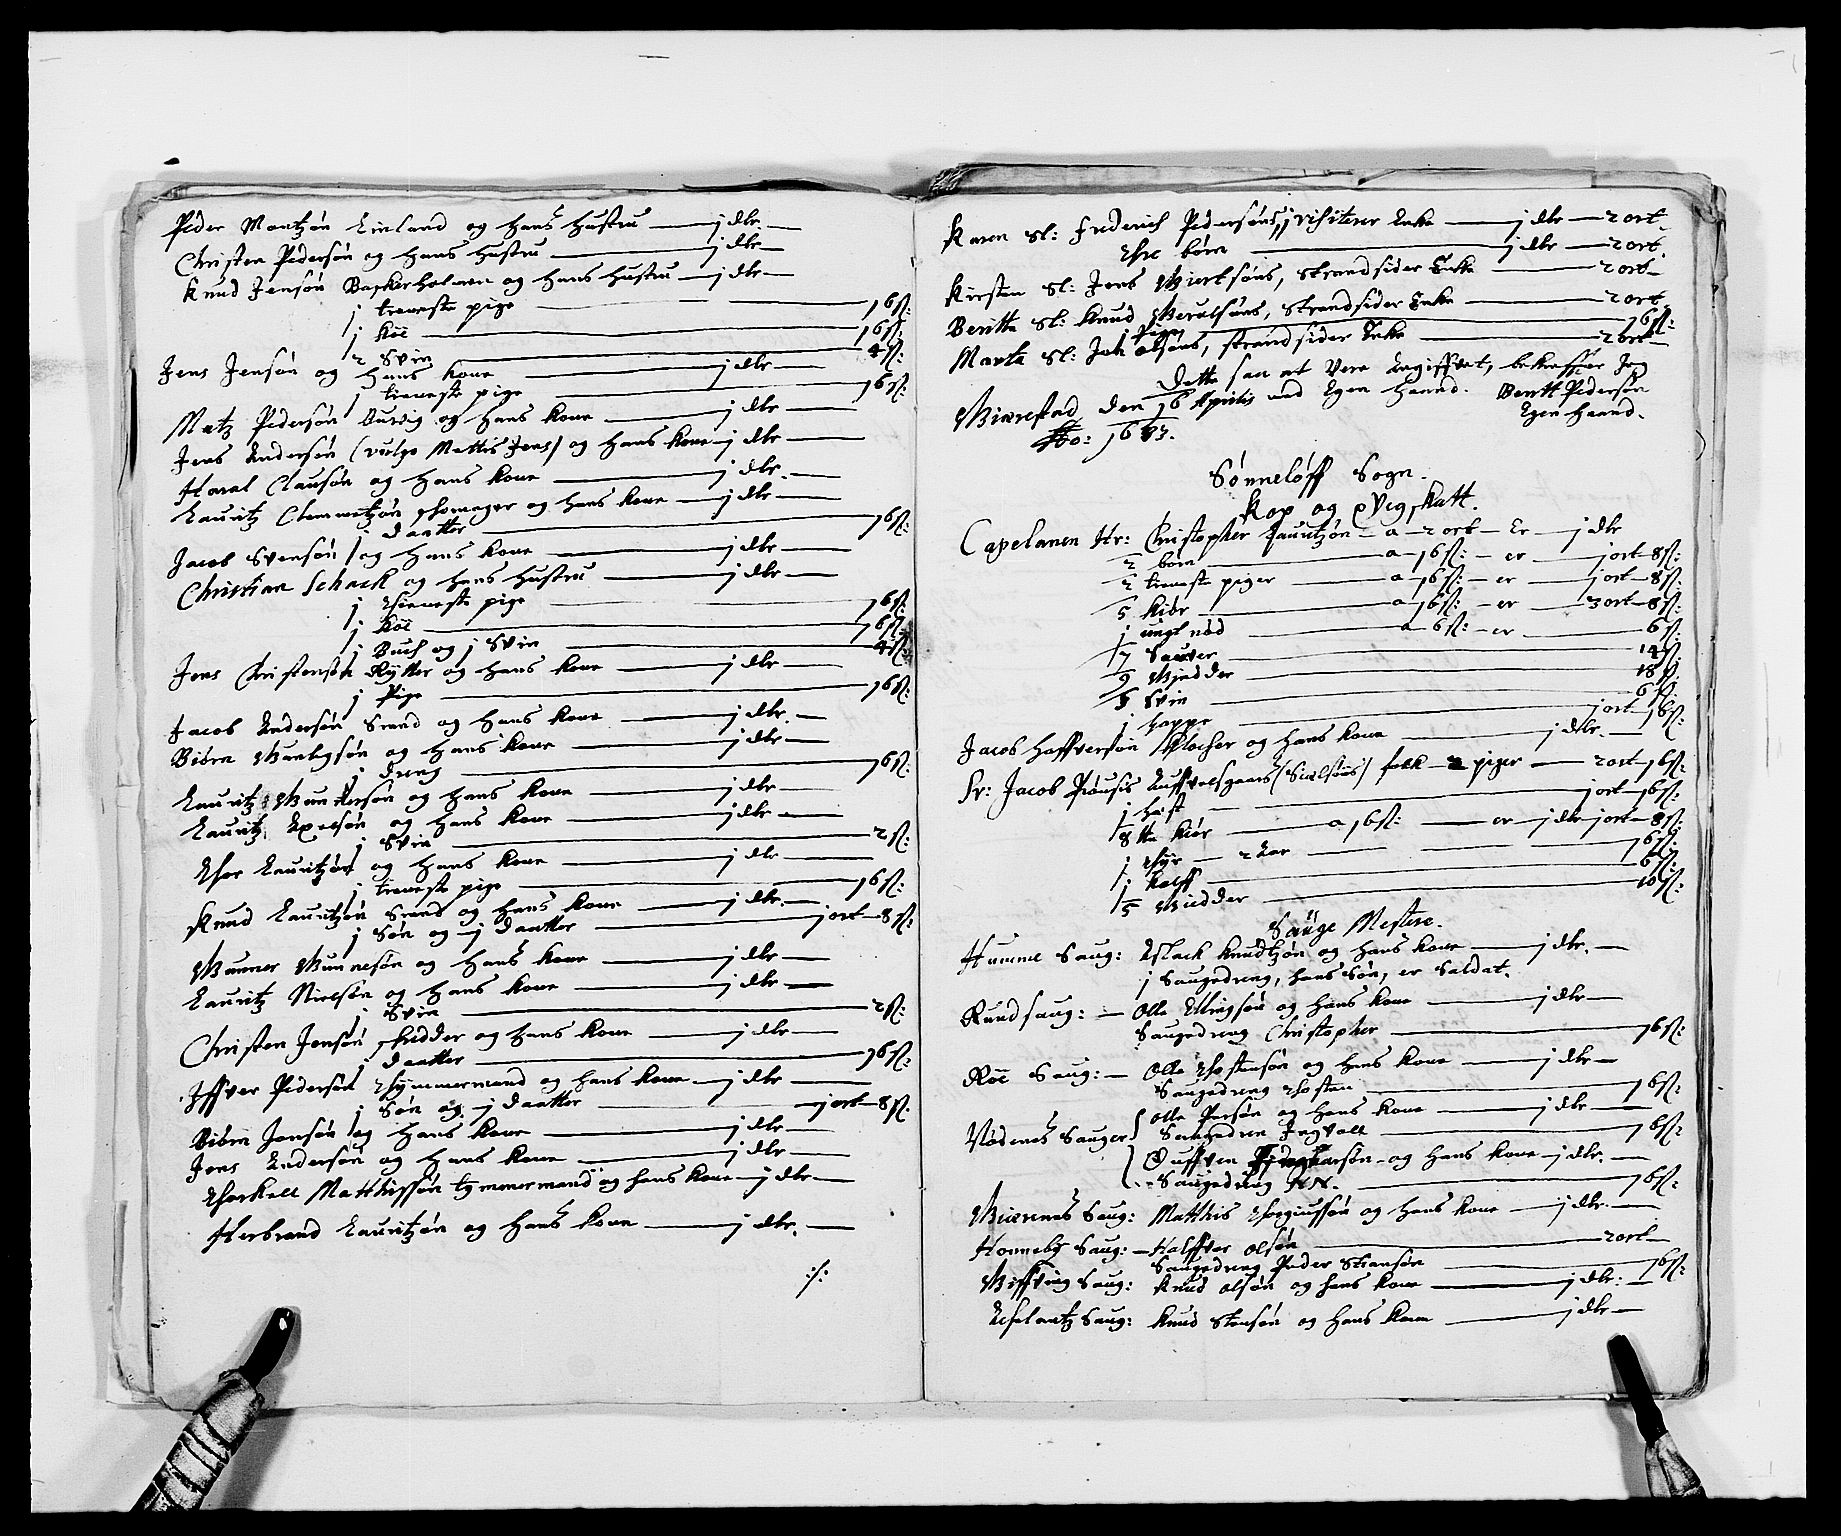 Peder Mortzøn Linland og hans hustru — j dlr. —
Christen Pedersøn og hans hustru — j dlr —
Knud Jensøn Baskerholmen og hans hustru — j dlr —
j tieneste pige — 16 sk:
j Koe — 16 sk:
2 Svin — 4 sk:
Jens Jensøn og hans kone — j dlr —
j tieneste pige — 16 sk:
Matz Pedersøn og hans kone — j dlr —
Jens Andersøn (vulgo Mattis Jens) og hans kone — j dlr —
Haral Clausøn og hans kone — j dlr. —
Lauritz Clemmetzøn skomager og hans kone — j dlr —
j daatter — 16 sk:
Jacob Svensøn og hans kone — j dlr —
Christian Schack og hans hustru — j dlr —
j thieneste pige — 16 sk:
j Koe — 16 sk:
j Buch og j Svin — 4 sk:
Jens Christensøn Rytter og hans kone — j dlr —
j Pige — 16 sk:
Jacob Andersøn Smed og hans kone — j dlr. —
Biørn og hans kone — j dlr —
j dreng — 16 sk:
Lauritz Gundersøn og hans kone — j dlr —
Lauritz Axelsøn og hans kone — j dlr —
j Svin — 2 sk:
Thor Lauritzøn og hans kone — j dlr —
j tieneste pige — 16 sk:
Knud Lauritzøn Smed og hans kone — j dlr. —
j Søn og j daatter — j ort — 8 sk:
Gunner Gunnersøn og hans kone — j dlr —
Lauritz Nielsøn og hans kone — j dlr —
j Svin — 2 sk:
Christen Jensøn skredder og hans kone — j dlr —
j daatter — 16 sk:
Iffver Pedersøn Thømmermand og hans kone — j dlr —
j Søn og j daatter — j ort — 8 sk:
Biørn Jensøn og hans kone — j dlr —
Jens Andersøn og hans kone — j dlr —
Thorkell Matthissøn tømmermand og hans kone — j dlr —
Herbrand Lauritzøn og hans kone — j dlr. —
:/:
Karen Sl: Frederich Pedersøns, visiterer Enke — j dlr — 2 ort
Thre børn — j dlr — 2 ort
Kirsten Sl: Jens Giertsøns, Strandsider Enke — 2 ort —
Beritte Sl: Knud Berulsøns, Strandsider Enke — 2 ort
j Pige — 16 sk:
Marte Sl: Joh olsøns, strandsider Enke — 2 ort —
Dette saa at Vere Angiffvet, bekreffter Jeg
med Egen Haand. Beritt Pedersøn
Egen Haand.
Giærestad den 16 Aprilis
Ao: 1683.
Sønneløff Sogn.
Kop og Qvegskatt.
Capelanen Hr: Christopher Lauritzøn — a — 2 ort — Er — j dlr
2 børn — a — 16 sk: — er — j ort — 8 sk:
2 tieneste piger — a — 16 sk: — er — j ort — 8 sk:
5 kiør — a 16 sk: — er — 3 ort — 8 sk:
j ungt nød — a 6 sk: — er — 6 sk:
7 Sauver — 14 sk:
9 Gjedder — 18 sk:
3 Svin — 6 sk:
j hoppe — j ort — 16 sk:
Jacob Haffversøn Klocher og hans kone — j dlr. —
Sr: Jacob folk — 2 piger — 2 ort 16 sk:
j hest — j ort 16 sk:
8te kiør — a 16 sk: — er — j dlr j ort — 8 sk:
j thyr — 2 aar — 16 sk:
j kalff — 6 sk:
5 Giedder — 10 sk:
Sauge Mestere.
Humme Saug: Aslack Knudtzøn og hans kone — j dlr. —
j Saugedreng, hans Søn, er Saldat.
Rund saug: — Olle Ellingsøn og hans kone — j dlr —
Saugedreng Christopher — 16 sk:
Roe Saug: — Olle Thostensøn og hans kone — j dlr —
Saugedreng Thosten — 16 sk:
Nødenes Sauger { Olle Persøn og hans kone — j dlr —
Saugedren Ingvald — 16 sk:
Guffven og hans kone — j dlr. —
Saugedreng N.N. — 16 sk:
Gierenes Saug: Matthis Thorgiussøn og hans kone — j dlr. —
Honneby Saug: — Halffvor olsøn — 2 ort —
Saugedreng Peder — 16 sk:
Giffving Saug: Knud olsøn og hans kone — j dlr: —
Saug: Knud Stensøn og hans kone — j dlr —